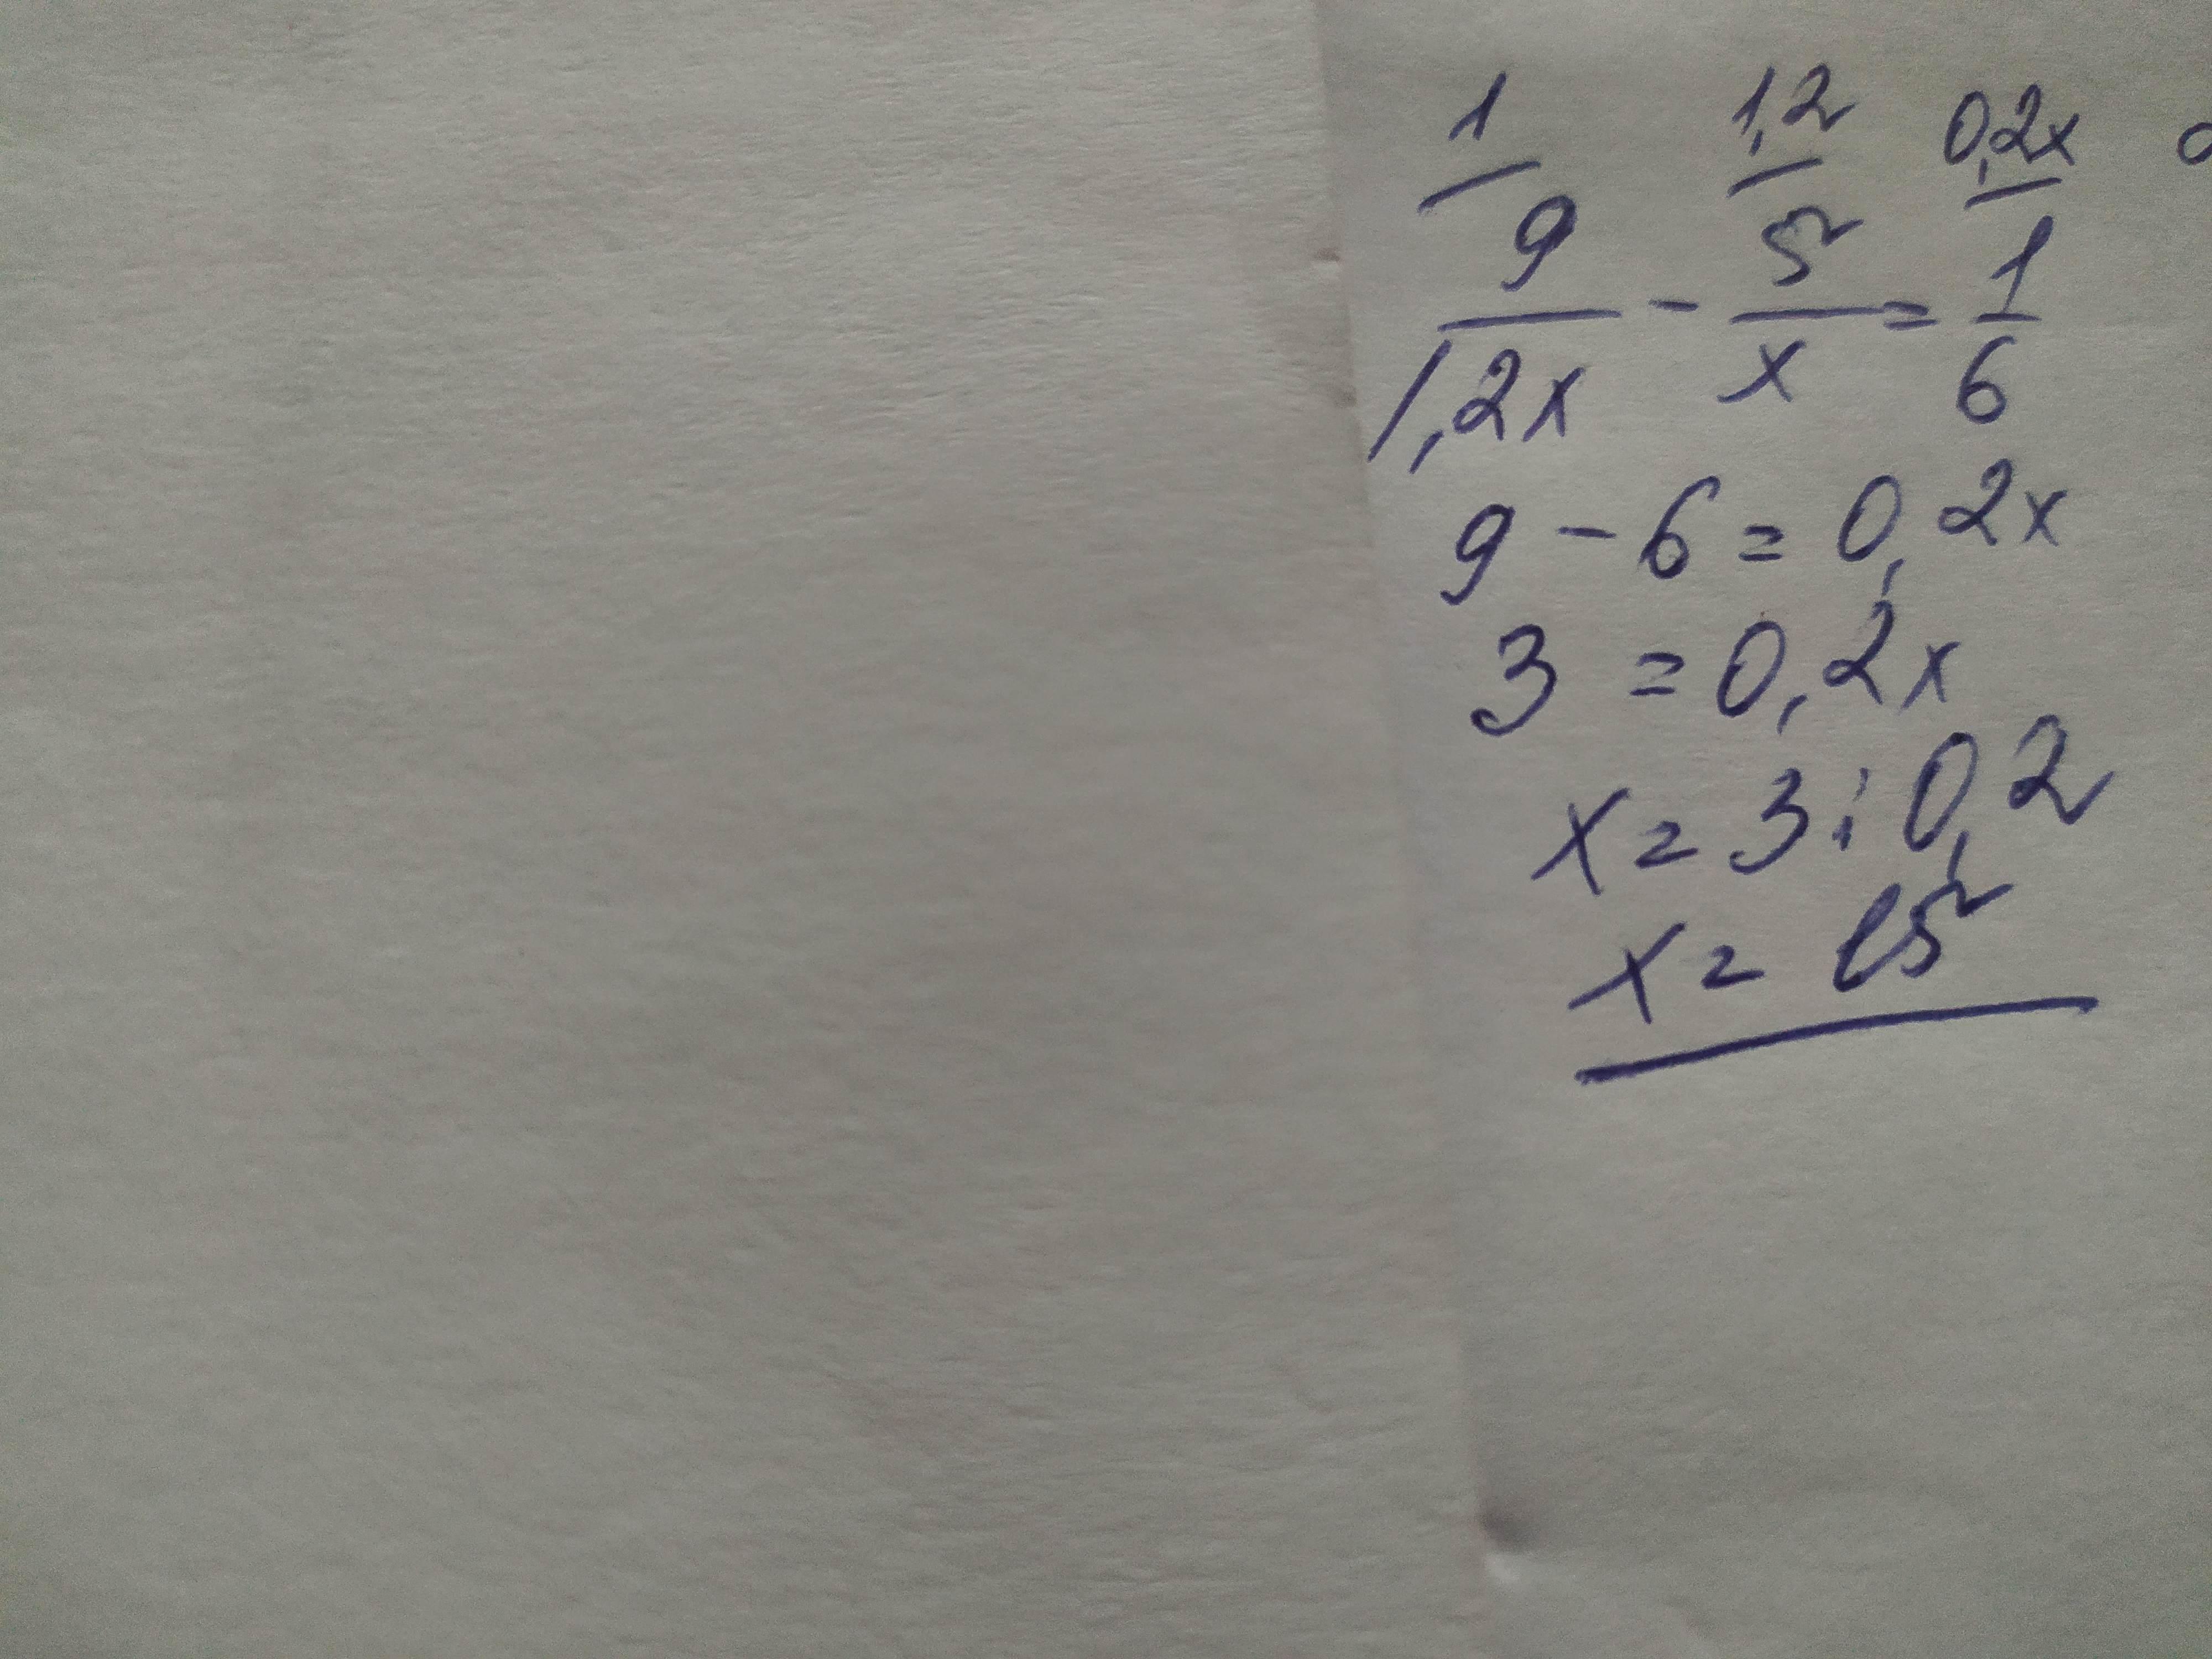 1 1,2 0,2x
9/1,2x - 5/x = 1/6
9 - 6 = 0,2x
3 = 0,2x
x = 3 : 0,2
x = 15